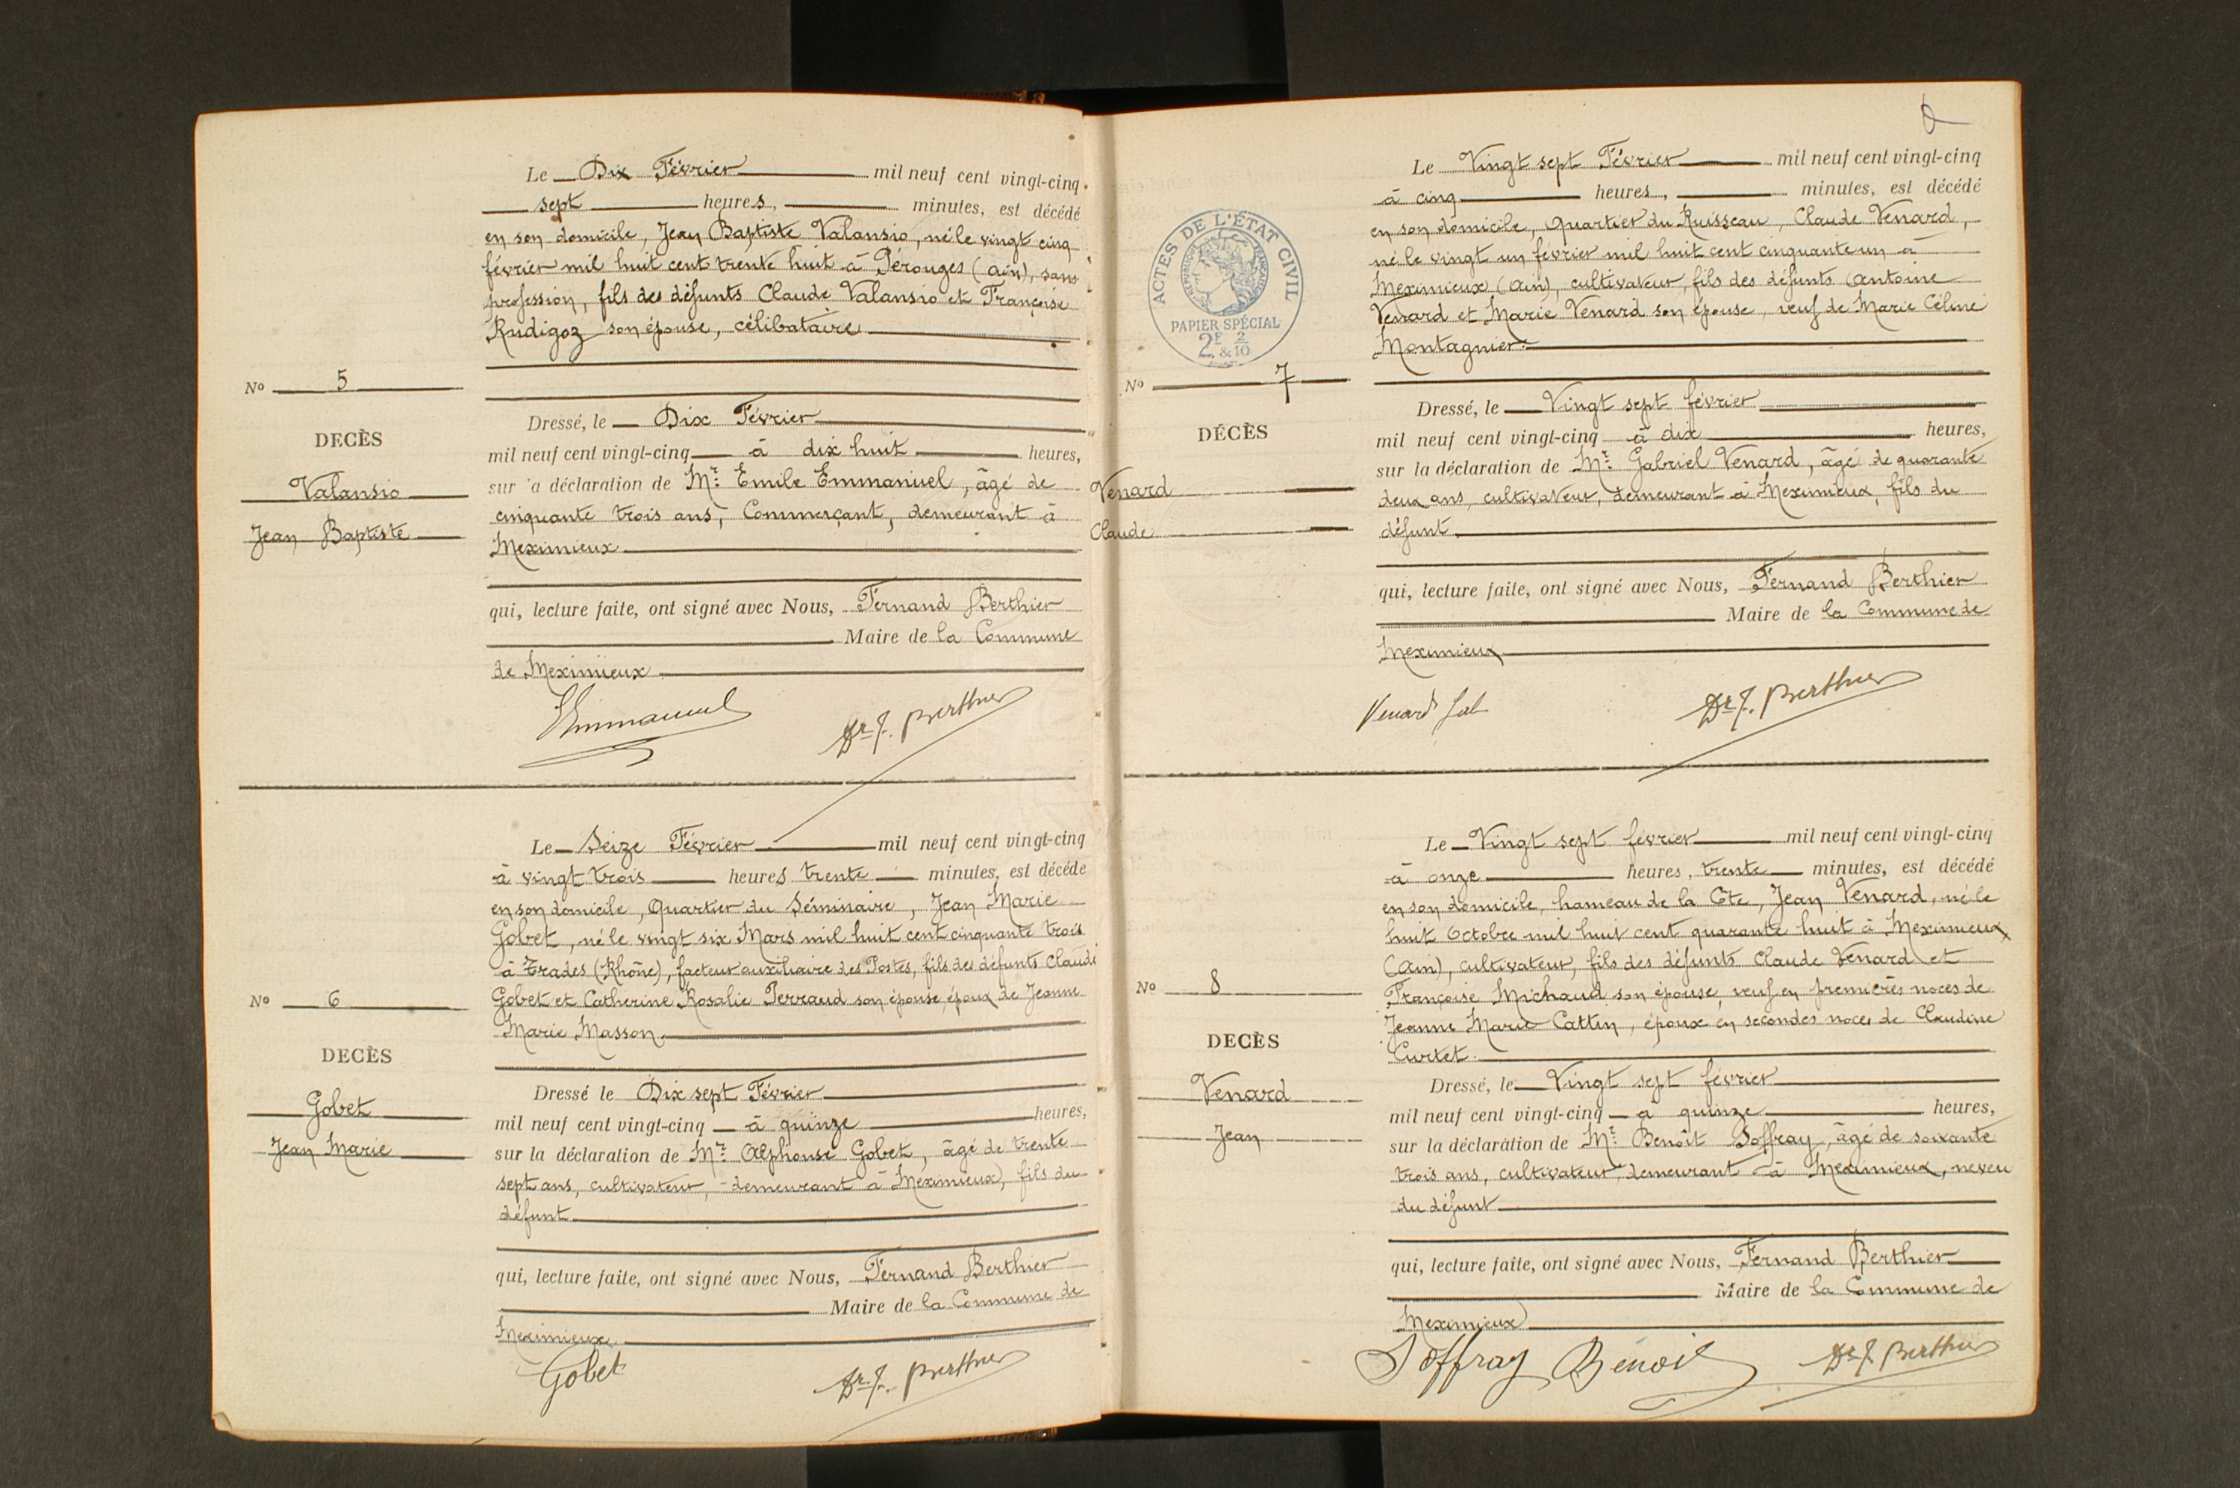 Le Dix Février mil neuf cent vingt-cinq
sept heures, minutes, est décédé
en son domicile, Jean Baptiste Valansio, né le vingt cinq
février mil huit cent trente huit à Pérouges (Ain), sans
profession, fils des défunts Claude Valansio et Françoise
Rudigoz son épouse, célibataire
No 5
DECÈS
Valansio
Jean Baptiste
Dressé, le Dix Février
mil neuf cent vingt-cinq à dix huit heures,
sur la déclaration de Mr Emile Emmanuel, âgé de
cinquante trois ans, Commerçant, demeurant à
Meximieux
qui, lecture faite, ont signé avec Nous, Fernand Berthier
Maire de la Commune
de Meximieux
Emmanuel Dr F. Berthier
Le Seize Février mil neuf cent vingt-cinq
à vingt trois heures trente minutes, est décédé
en son domicile, Quartier du Séminaire, Jean Marie
Gobet, né le vingt six Mars mil huit cent cinquante trois
à Trades (Rhône), facteur auxiliaire des Postes, fils des défunts Claude
Gobet et Catherine Rosalie Perraud son épouse, époux de Jeanne
Marie Masson.
No 6
DECÈS
Gobet
Jean Marie
Dressé le Dix sept Février
mil neuf cent vingt-cinq à quinze heures,
sur la déclaration de Mr Alphonse Gobet, âgé de trente
sept ans, cultivateur, demeurant à Meximieux, fils du
défunt
qui, lecture faite, ont signé avec Nous, Fernand Berthier
Maire de la Commune de
Meximieux.
Gobet Dr F. Berthier
ACTES DE L'ÉTAT CIVIL
RÉPUBLIQUE FRANÇAISE
PAPIER SPÉCIAL
2F & 2/10
Le Vingt sept Février mil neuf cent vingt-cinq
à cinq heures, minutes, est décédé
en son domicile, Quartier du Ruisseau, Claude Venard,
né le vingt un février mil huit cent cinquante un à
Meximieux (Ain), cultivateur, fils des défunts Antoine
Venard et Marie Venard son épouse, veuf de Marie Céline
Montagnier.
No 7
DÉCÈS
Venard
Claude
Dressé, le Vingt sept février
mil neuf cent vingt-cinq à dix heures,
sur la déclaration de Mr Gabriel Venard, âgé de quarante
deux ans, cultivateur, demeurant à Meximieux, fils du
défunt.
qui, lecture faite, ont signé avec Nous, Fernand Berthier
Maire de la Commune de
Meximieux
Venard Dr F. Berthier
Le Vingt sept février mil neuf cent vingt-cinq
à onze heures, trente minutes, est décédé
en son domicile, hameau de la Côte, Jean Venard, né le
huit Octobre mil huit cent quarante huit à Meximieux
(Ain), cultivateur, fils des défunts Claude Venard et
Françoise Michaud son épouse, veuf en premières noces de
Jeanne Marie Cattin, époux en secondes noces de Claudine
Curtet.
No 8
DECÈS
Venard
Jean
Dressé, le Vingt sept février
mil neuf cent vingt-cinq a quinze heures,
sur la déclaration de Mr Benoît Joffray, âgé de soixante
trois ans, cultivateur demeurant à Meximieux, neveu
du défunt
qui, lecture faite, ont signé avec Nous, Fernand Berthier
Maire de la Commune de
Meximieux
Joffray Benoit Dr F. Berthier